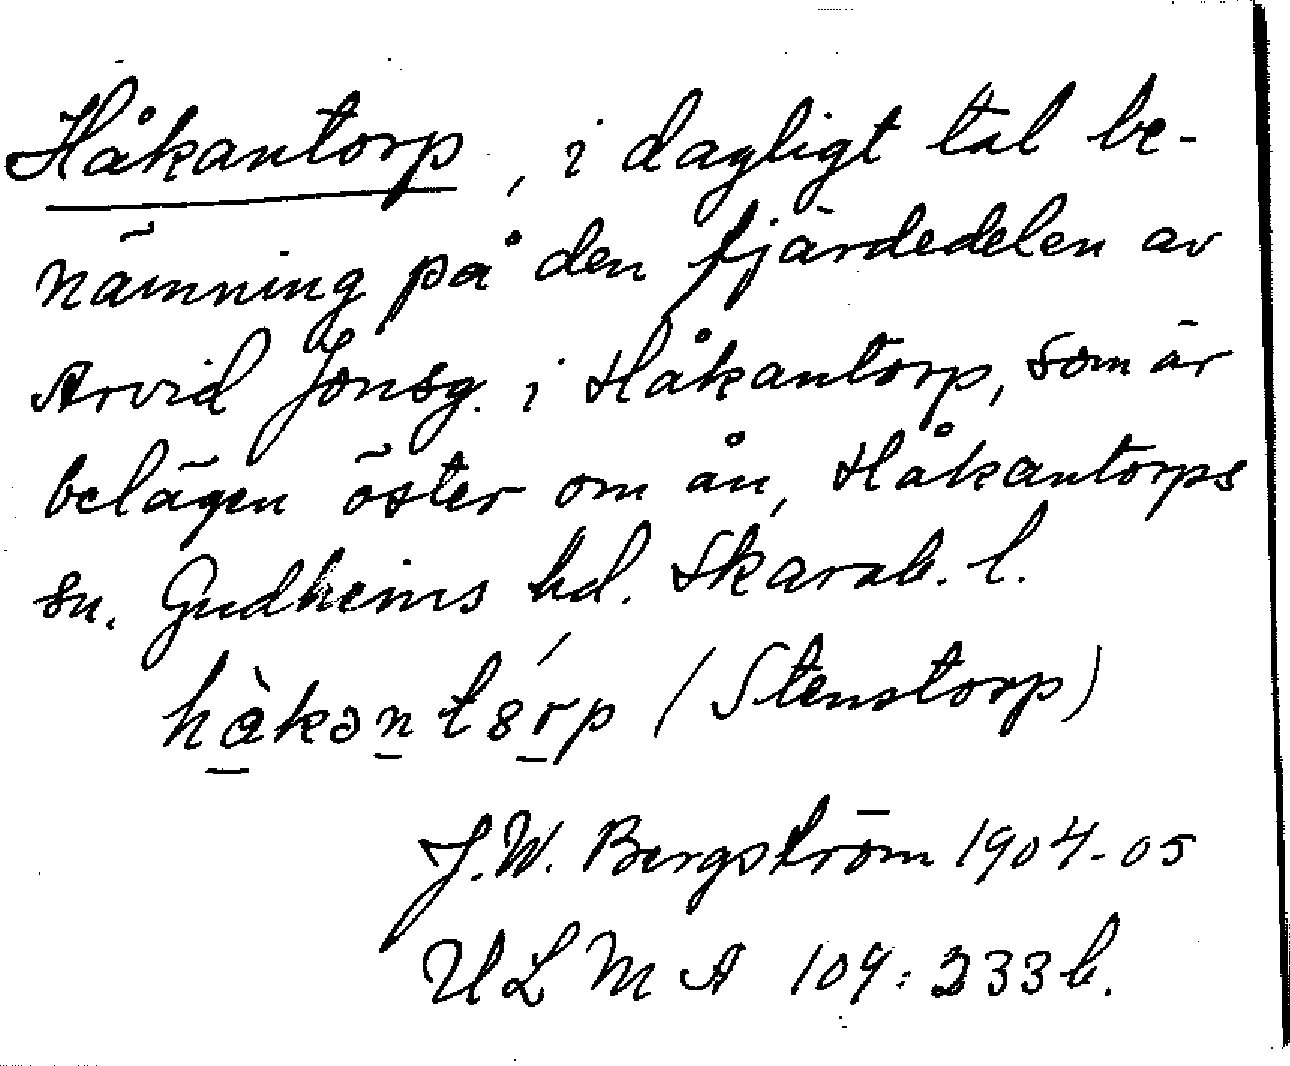 Håkantorp, i dagligt tal be-
nämning på den fjärdedelen av
Arvid Jönsg. i Håkantorp, som är
belägen öster om ån, Håkantorps
sn. Gudhems hd. Skarab. l.
(Stenstorp)
J.W. Bergström 1904-05
ULMA 109:233b.